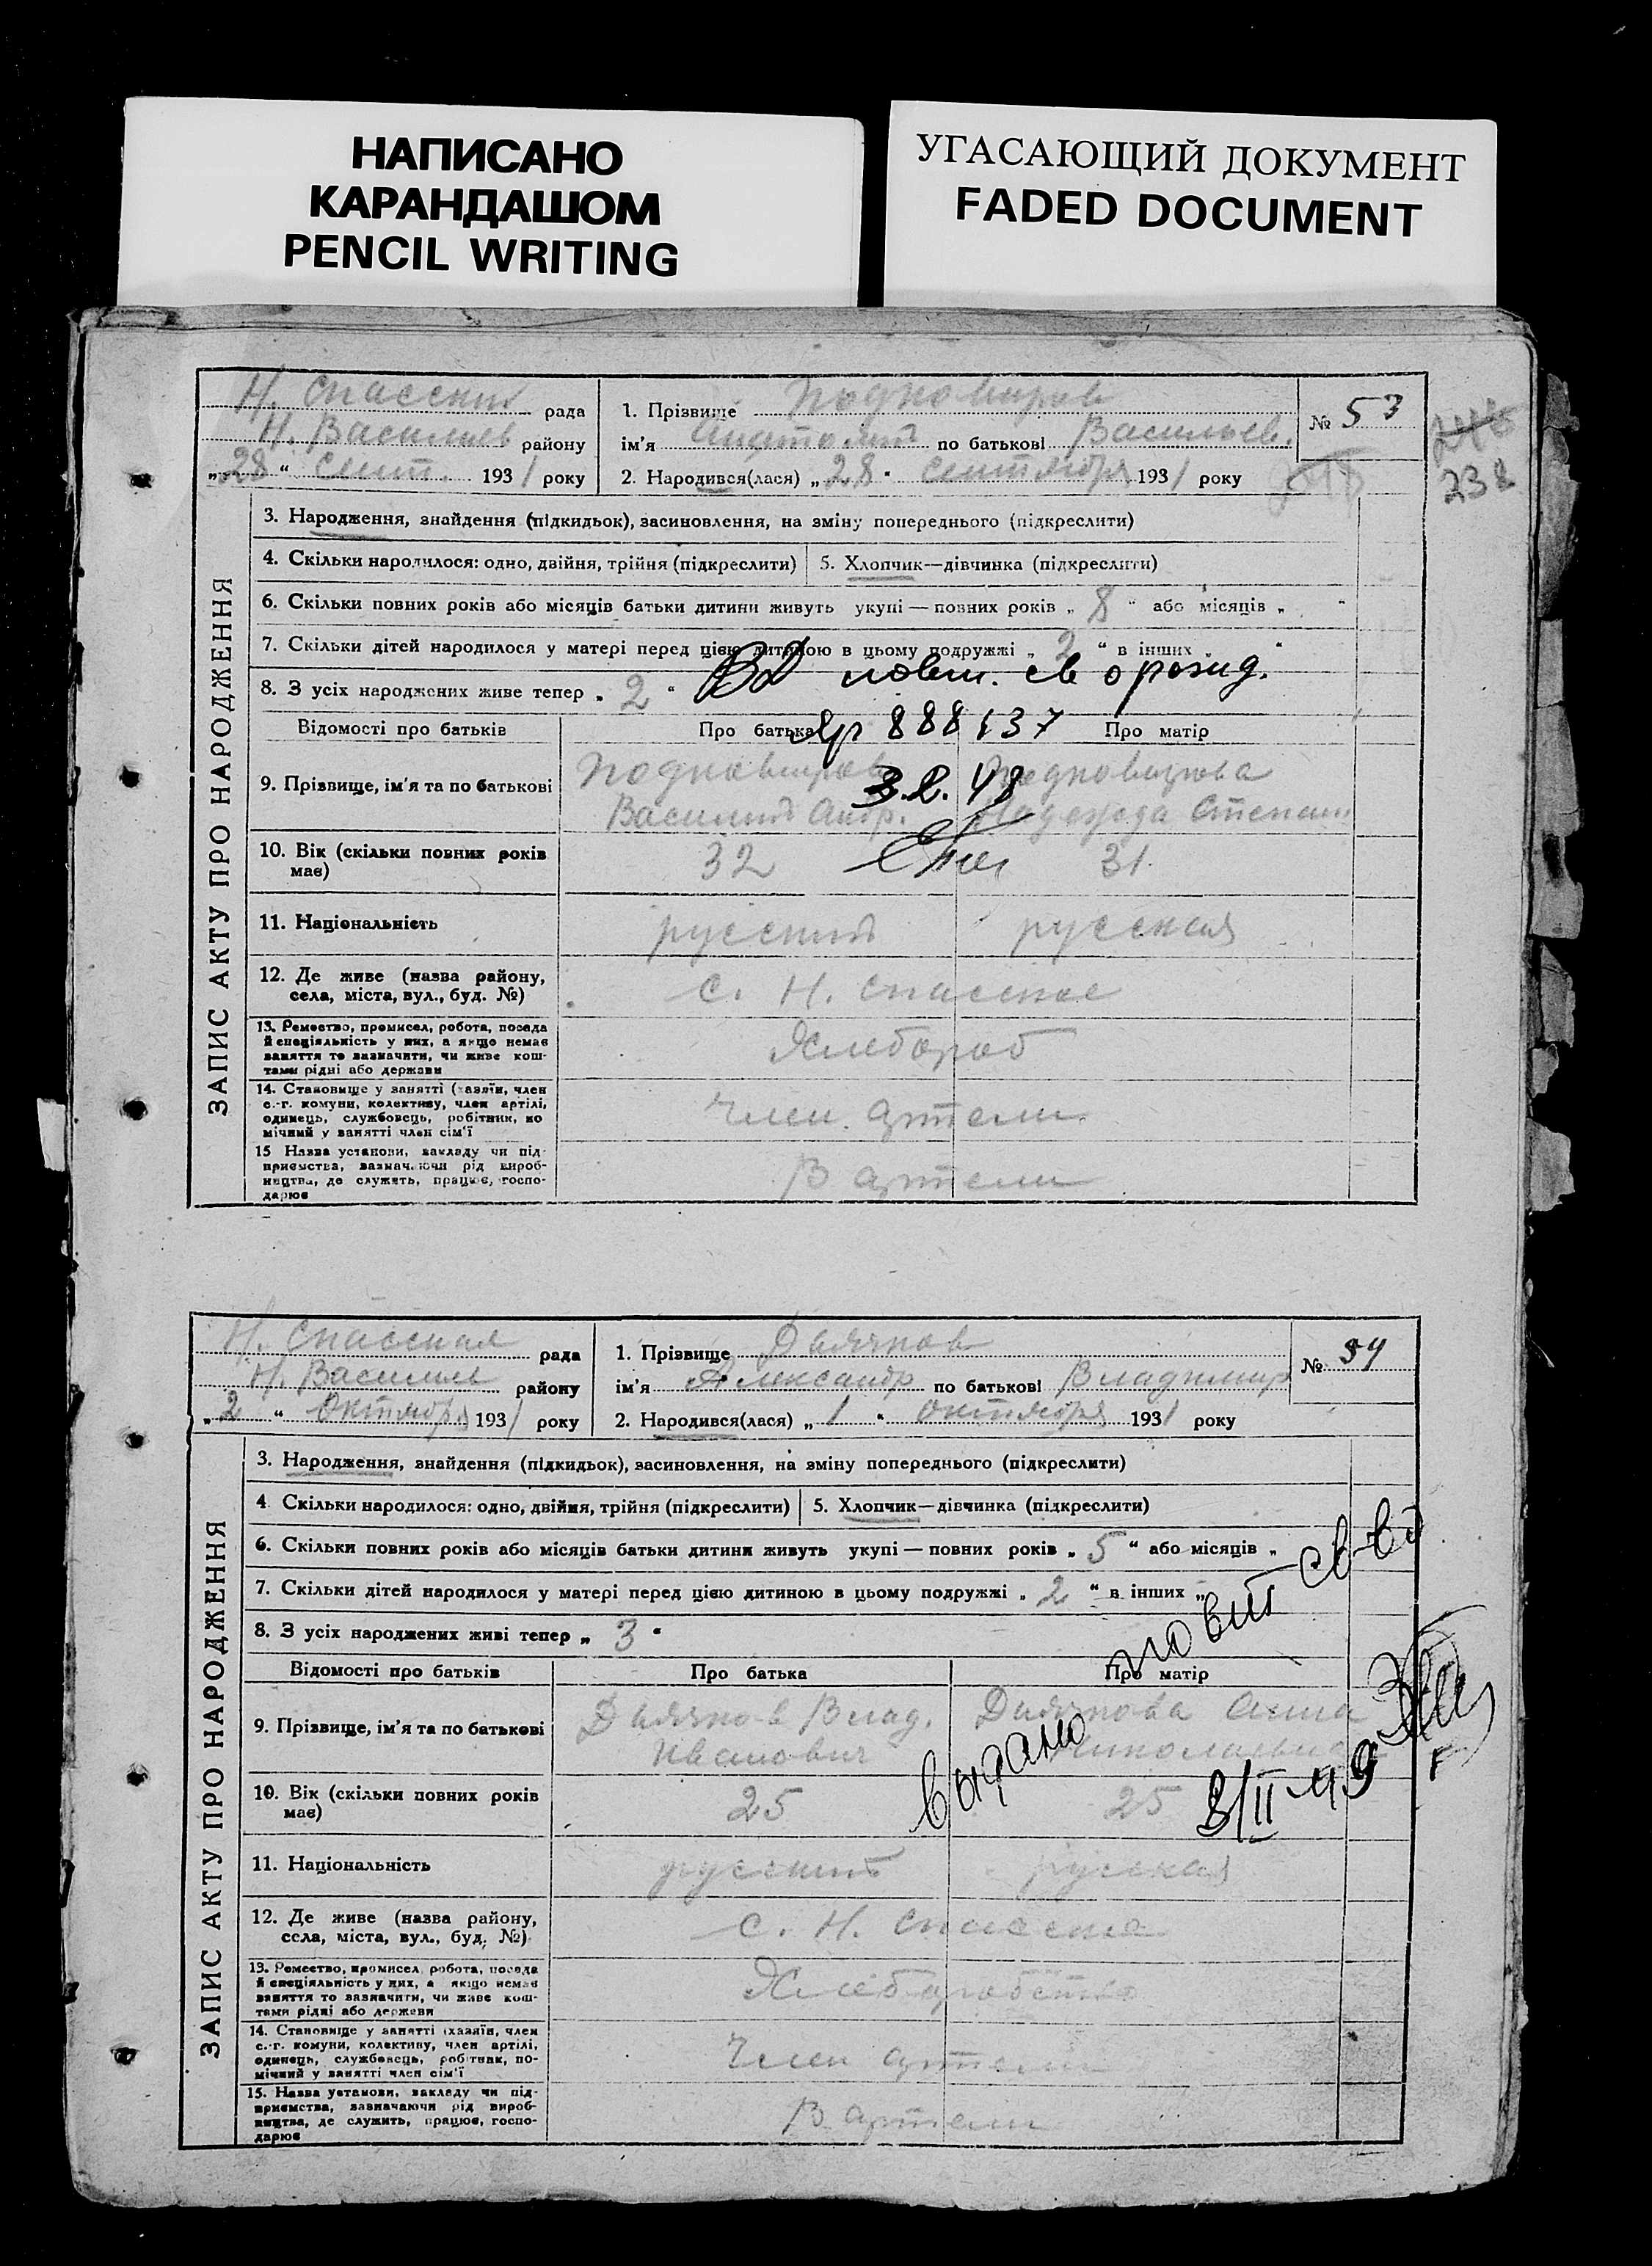 НАПИСАНО
КАРАНДАШОМ
PENCIL WRITING
УГАСАЮЩИЙ ДОКУМЕНТ
FADED DOCUMENT
Н. Спасский рада
Н. Васильев району
„28“ сент. 1931 року
1. Прізвище
ім'я Анатолий по батькові Васильев.
2. Народився(лася) „28“ сентября 1931 року
№ 53
238
ЗАПИС АКТУ ПРО НАРОДЖЕННЯ
3. Народження, знайдення (підкидьок), засиновлення, на зміну попереднього (підкреслити)
4. Скільки народилося: одно, двійня, трійня (підкреслити)
5. Хлопчик—дівчинка (підкреслити)
6. Скільки повних років або місяців батьки дитини живуть укупі — повних років „8“ або місяців „ “
7. Скільки дітей народилося у матері перед цією дитиною в цьому подружжі „2“ в інших „ “
8. З усіх народжених живе тепер „2“
повт. св о рожд.
888137
3.2.48
Відомості про батьків
Про батька
Про матір
9. Прізвище, ім'я та по батькові
Василий Андр.
Надежда Степан
10. Вік (скільки повних років має)
32
31
11. Національність
русский
русская
12. Де живе (назва району, села, міста, вул., буд. №)
с. Н. Спасское
13. Ремество, промисел, робота, посада й спеціяльність у них, а якщо немає заняття то вазначити, чи живе коштами рідні або держави
Хлебороб
14. Становище у занятті (хазяїн, член с.-г. комуни, колективу, член артілі, одинець, службовець, робітник, помічний у занятті член сім'ї
Член артели
15 Назва установи, закладу чи підприємства, зазначаючи рід виробництва, де служить, працює, господарює
В артели
Н. Спасская рада
Н. Василье району
„2“ Октября 1931 року
1. Прізвище Дьячков
ім'я Александр по батькові Владимир
2. Народився(лася) „1“ октября 1931 року
№ 54
ЗАПИС АКТУ ПРО НАРОДЖЕННЯ
3. Народження, знайдення (підкидьок), засиновлення, на зміну попереднього (підкреслити)
4. Скільки народилося: одно, двійня, трійня (підкреслити)
5. Хлопчик—дівчинка (підкреслити)
6. Скільки повних років або місяців батьки дитини живуть укупі — повних років „5“ або місяців „
7. Скільки дітей народилося у матері перед цією дитиною в цьому подружжі „2“ в інших „
8. З усіх народжених живі тепер „3“
Відомості про батьків
Про батька
Про матір
выдано повт св-во
8/II 49
9. Прізвище, ім'я та по батькові
Дьячков Влад.
Иванович
Дьячкова Анна
Николаевна
10. Вік (скільки повних років має)
25
25
11. Національність
русский
русская
12. Де живе (назва району, села, міста, вул., буд. №)
с. Н. Спасско
13. Ремество, промисел, робота, посада й спеціяльність у них, а якщо немає заняття то зазначити, чи живе коштами рідні або держави
Хлеборобство
14. Становище у занятті (хазяїн, член с.-г. комуни, колективу, член артілі, одинець, службовець, робітник, помічний у занятті член сім'ї
Член артели
15. Назва установи, закладу чи підприємства, зазначаючи рід виробництва, де служить, працює, господарює
В артели